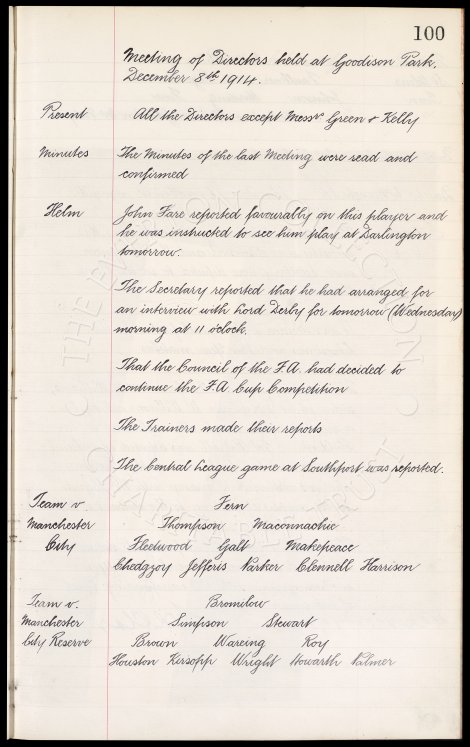 100
Meeting of Directors held at Goodison Park,
December 8th 1914.
Present All the Directors except Messrs Green & Kelly
Minutes The Minutes of the last Meeting were read and
confirmed
Helm John Fare reported favourably on this player and
he was instructed to see him play at Darlington
tomorrow.
The Secretary reported that he had arranged for
an interview with Lord Derby for tomorrow (Wednesday)
morning at 11 o'clock.
That the Council of the F.A. had decided to
continue the F.A Cup Competition
The Trainers made their reports
The Central League game at Southport was reported.
Team v. Fern
Manchester Thompson Maconnachie
City Fleetwood Galt Makepeace
Chedgzoy Jefferis Parker Clennell Harrison
Team v. Bromilow
Manchester Simpson Stewart
City Reserve Brown Wareing Roy
Houston Kirsopp Wright Howarth Palmer